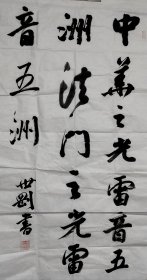 中華之光雷音五
洲法门之光雷
音五洲